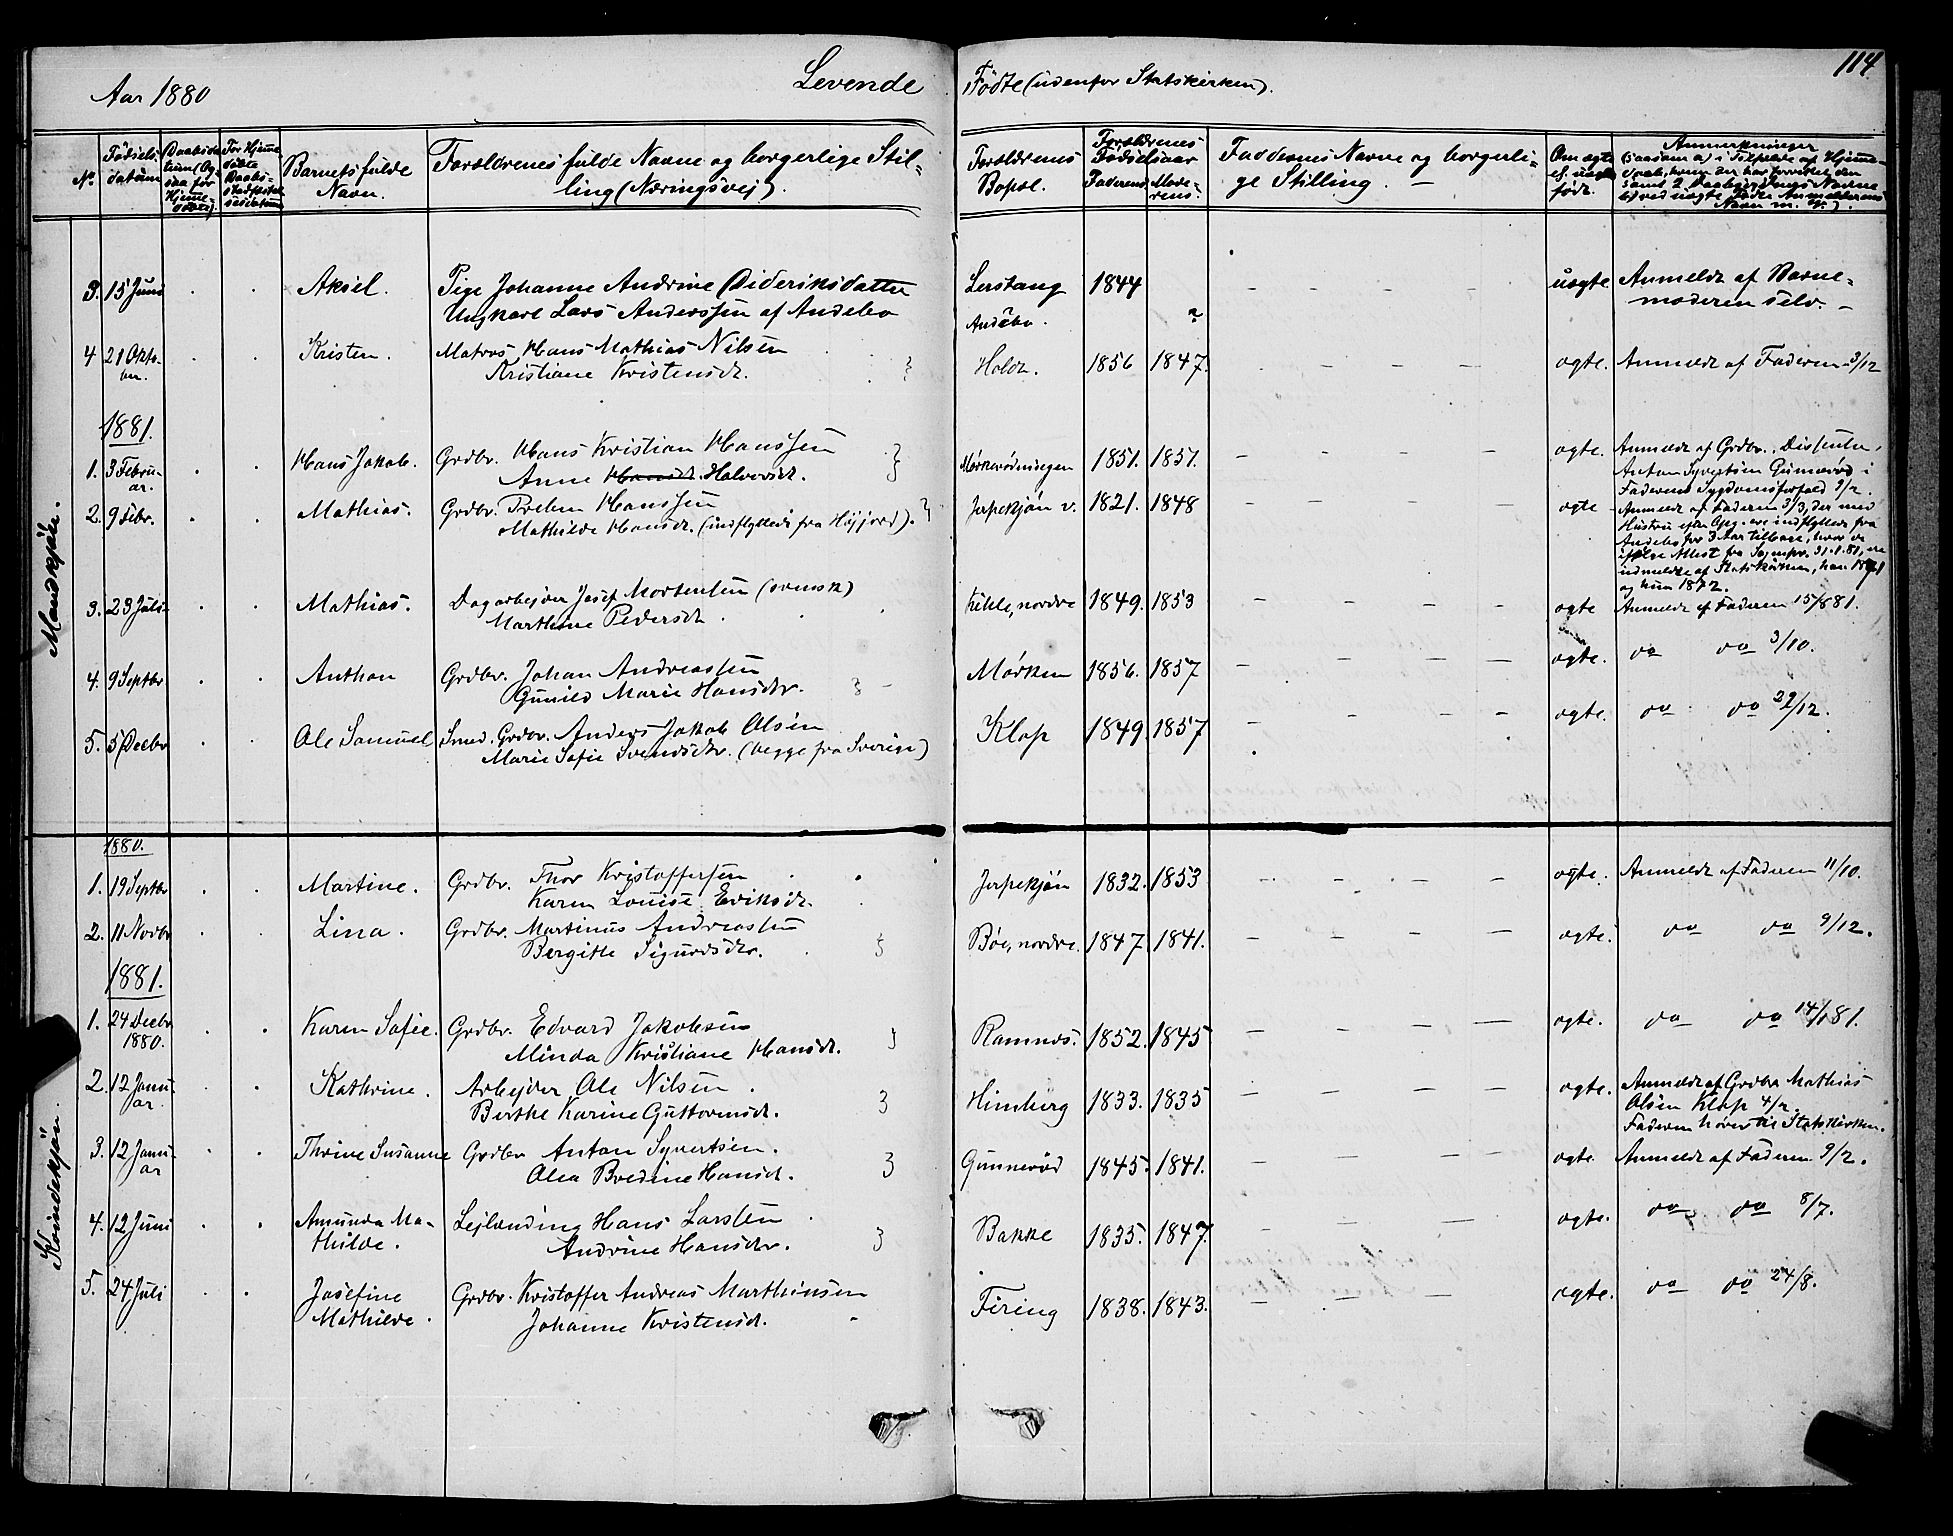 Aar 1880
Levende
Fødte (udenfor Statskirken).
114
No
Fødsels-
datum
Barnets fulde
Navn.
Forældrenes fulde Navne og borgerlige Stil-
ling (Næringsvej).
Forældrenes
Bopæl.
Forældrenes
Fødselsaar
Faderens
Mode-
rens.
Faddernes Navne og borgerli-
ge Stilling. —
Om ægte
el. uægte
født.
Anmærkninger
Mandkjøn.
3. 15 Juni Aksel. Pige Johanne Andrine Dideriksdatter Lerstang 1844 uægte Anmeldt af Barne-
Ungkarl Lars Anderssen af Andebo Andebo. ? moderen selv. —
4 21 Okto- Kristen. Matros Hans Mathias Nilsen Holdt. 1856 1847. ægte. Anmeldt af Faderen 3/12
ber. Kristiane Kristensdt.
1881.
1. 3 Febru- Hans Jakob. Grdbr. Hans Kristian Hanssen 1851. 1857. ægte. Anmeldt af Grdbr., Dissenter,
ar. Anne Hansdt. Halvorsdt. Anton Syvertsen Gunnerød i
Faderens Sygdomsforfald 9/2.
2. 9 Febr. Mathias. Grdbr. Preben Hanssen Jerpekjøn v. 1821. 1848 ægte Anmeldt af Faderen 3/3, der med
Mathilde Hansdt. (indflyttede fra Høyjord). Hustru efter Opg. ere indflyttede fra
Andebo for 3 Aar tilbage, hvor de
ifølge Attest fra Sognepr. 31.1.81, ere
udmeldte af Statskirken, han 1871
og hun 1872.
3. 23 Juli Mathias. Dagarbejder Josef Mortensen (svensk) nordre 1849. 1853 ægte Anmeldt af Faderen 15/8 81.
Marthine Pedersdt.
4. 9 Septbr Anthon Grdbr. Johan Andreassen Mørken 1856. 1857 ægte. do do 3/10.
Gunild Marie Hansdtr.
5. 5 Decbr Ole Samuel Smed. Grdbr. Anders Jakob Olsen Klop 1849 1857 ægte. do do 29/12.
Marie Sofie Svendsdtr. (begge fra Sverige)
Kvindekjøn.
1880.
1. 19 Septbr Martine. Grdbr. Thor Kristoffersen Jerpekjøn 1832. 1853 ægte. Anmeldt af Faderen 11/10.
Karen Louise Eriksdt.
2. 11 Novbr Lina. Grdbr. Martinus Andreassen Bøe, nordre. 1847 1841. ægte. do do 9/12.
Bergitte Sigurdsdtr.
1881.
1. 24 Decbr Karen Sofie. Grdbr. Edvard Jakobsen Ramnes. 1852. 1845 ægte. do do 14/1 81.
1880. Minda Kristiane Hansdt.
2. 12 Janu- Kathrine. Arbejder Ole Nilsen Himberg 1833. 1835 ægte. Anmeldt af Grdbr Mathias
ar. Berthe Karine Guttormsdt. Olsen Klop 4/2.
Faderen hører til Statskirken.
3. 12 Janu- Thrine Susanne Grdbr Anton Syvertsen. Gunnerød 1845. 1841. ægte. Anmeldt af Faderen 9/2.
ar Olea Bredine Hansdt.
4. 12 Juni Amunda Ma- Lejlending Hans Larsten Bakke 1835. 1847. ægte. do do 8/7.
thilde. Andrine Hansdtr.
5. 24 Juli Josefine Grdbr. Kristoffer Andreas Marthinsen Firing 1838. 1843. ægte. do do 24/8.
Mathilde. Johanne Kristensdt.